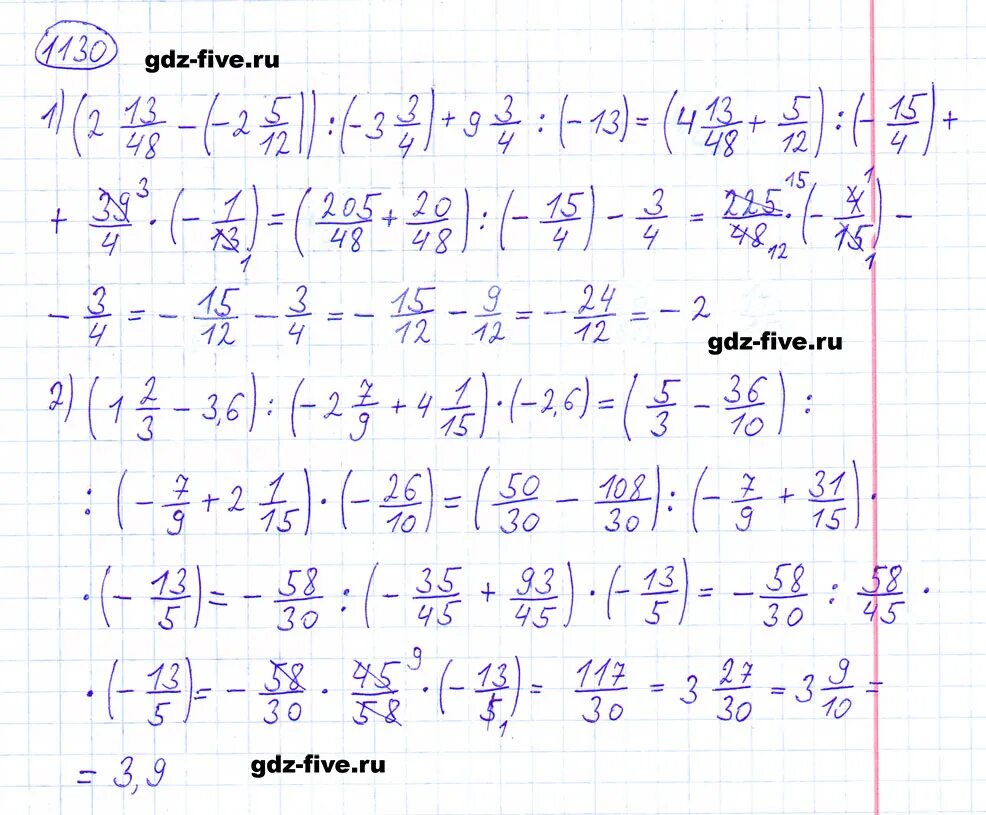 1130
gdz-five.ru
1) (2 13/48 − (−2 5/12)) : (−3 3/4) + 9 3/4 : (−13) = (4 13/48 + 5/12) : (−15/4) +
+ 39/4 ³ · (−1/13 ₁) = (205/48 + 20/48) : (−15/4) − 3/4 = 225/48 ¹⁵ ₁₂ · (−4/15 ¹ ₁) −
− 3/4 = −15/12 − 3/4 = −15/12 − 9/12 = −24/12 = −2
gdz-five.ru
2) (1 2/3 − 3,6) : (−2 7/9 + 4 1/15) · (−2,6) = (5/3 − 36/10) :
: (−7/9 + 2 1/15) · (−26/10) = (50/30 − 108/30) : (−7/9 + 31/15) ·
· (−13/5) = −58/30 : (−35/45 + 93/45) · (−13/5) = −58/30 : 58/45 ·
· (−13/5) = −58/30 · 45/58 ⁹ · (−13/5 ₁) = 117/30 = 3 27/30 = 3 9/10 =
= 3,9
gdz-five.ru